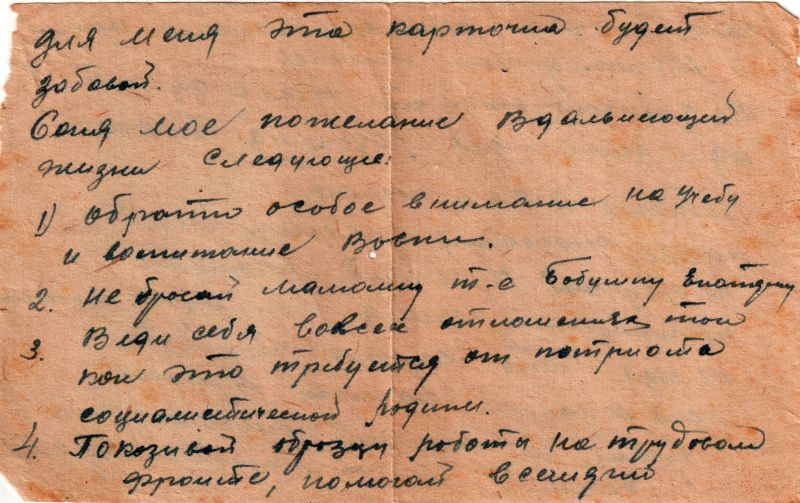 для меня эта карточка будет
забавой.
Соня мое пожелание в дальнеющей
жизни следующие:
1) обрати особое внимание на учебу
и воспитание Вовки.
2. Не бросай мамашу т-е Бабушку
3. Веди себя во всех отношениях так
как это требуется от патриота
социалистической родины.
4. Показивай образци работи на трудовом
фронте, помогай